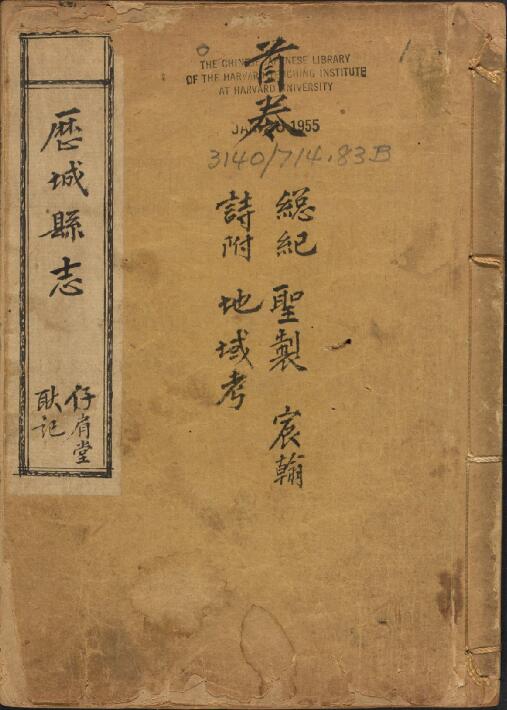 首卷
THE CHINESE-JAPANESE LIBRARY
OF THE HARVARD-YENCHING INSTITUTE
AT HARVARD UNIVERSITY
1955
3140/714.83B
總紀 聖製 宸翰
詩附 地域考
歷城縣志
仔肩堂
耿記